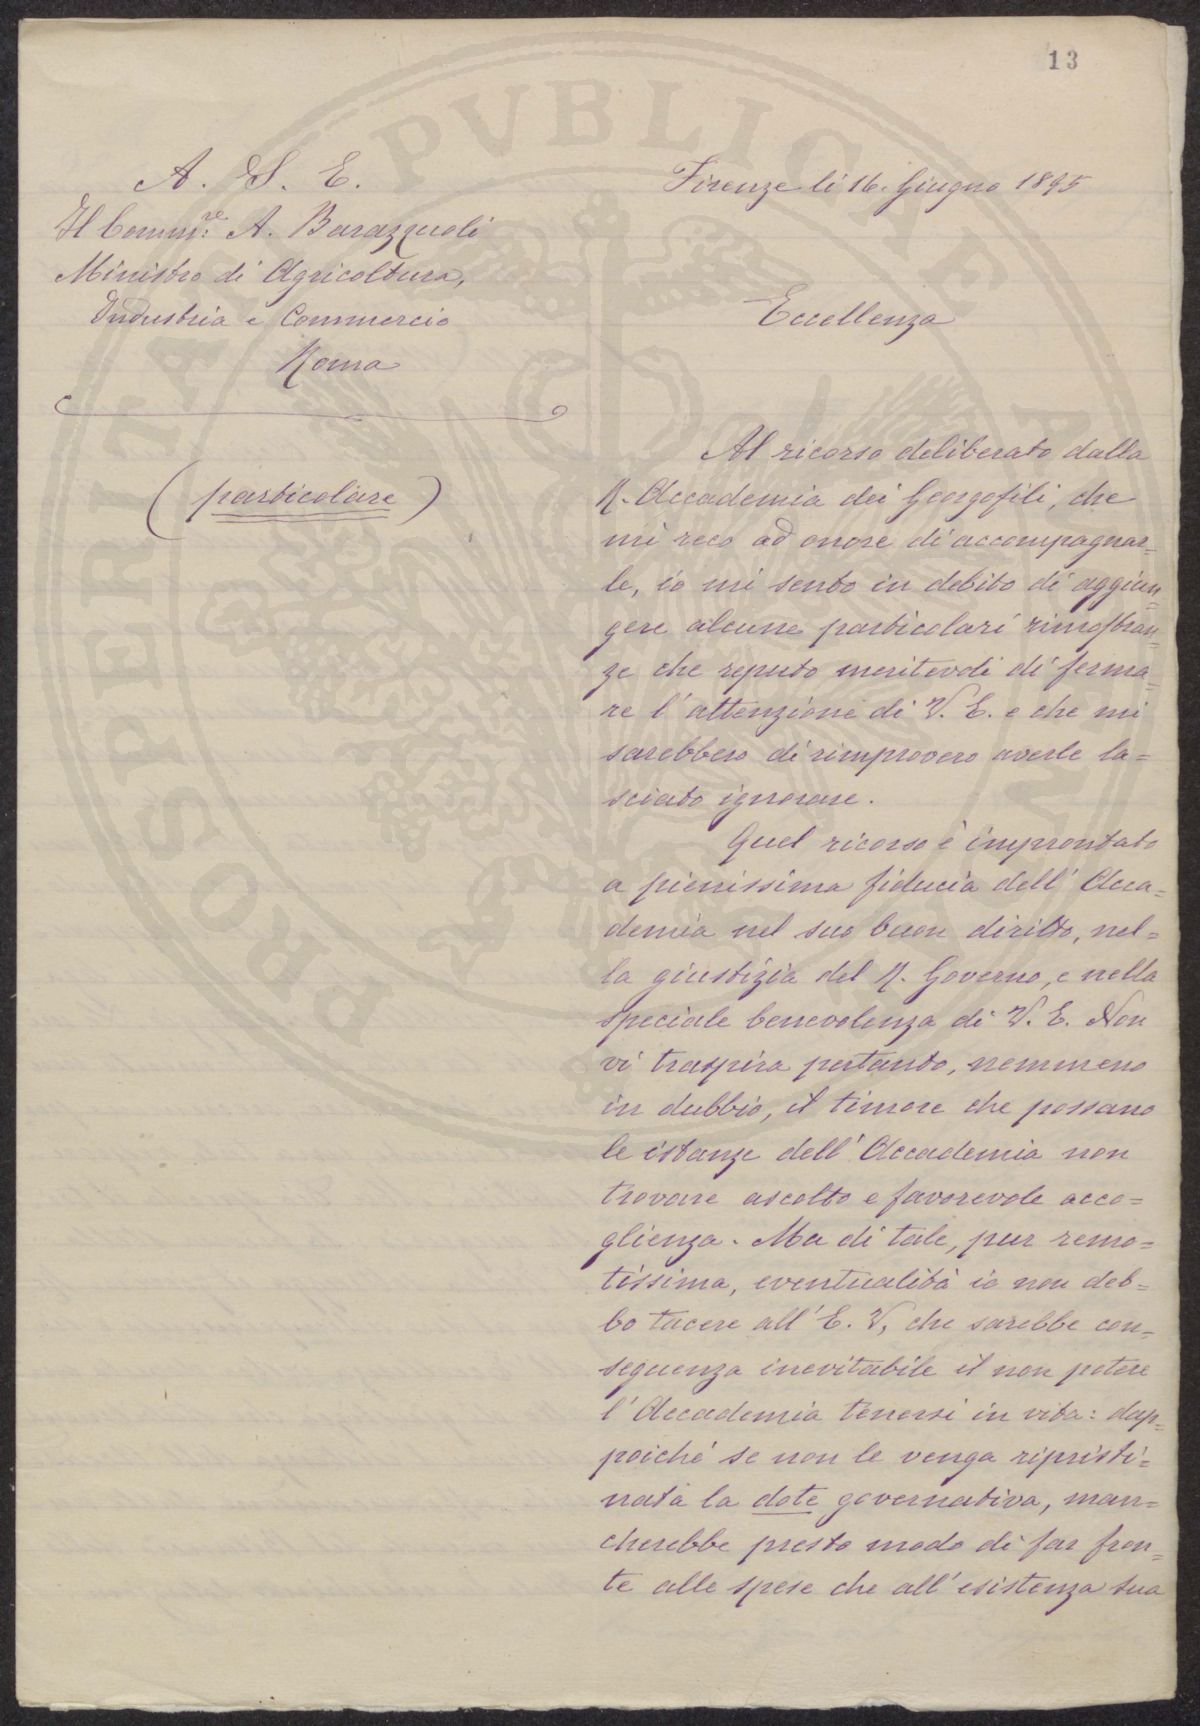 13
A. S. E.
Il Comm.re A. Barazzuoli
Ministro di Agricoltura,
Industria e Commercio
Roma
(particolare)
Firenze li 16. Giugno 1895
Eccellenza
Al ricorso deliberato dalla
R. Accademia dei Georgofili, che
mi reco ad onore di accompagnar=
le, io mi sento in debito di aggiun=
gere alcune particolari rimostran=
ze che reputo meritevoli di ferma=
re l'attenzione di V. E. e che mi
sarebbero di rimprovero averle la=
sciato ignorare.
Quel ricorso è improntato
a pienissima fiducia dell'Acca=
demia nel suo buon diritto, nel=
la giustizia del R. Governo, e nella
speciale benevolenza di V. E. Non
vi traspira pertanto, nemmeno
in dubbio, il timore che possano
le istanze dell'Accademia non
trovare ascolto e favorevole acco=
glienza. Ma di tale, pur remo=
tissima, eventualità io non deb=
bo tacere all'E. V, che sarebbe con=
seguenza inevitabile il non potere
l'Accademia tenersi in vita: dap=
poiché se non le venga ripristi=
nata la dote governativa, man=
cherebbe presto modo di far fron=
te alle spese che all'esistenza sua
PROSPERITAS PVBLICAE